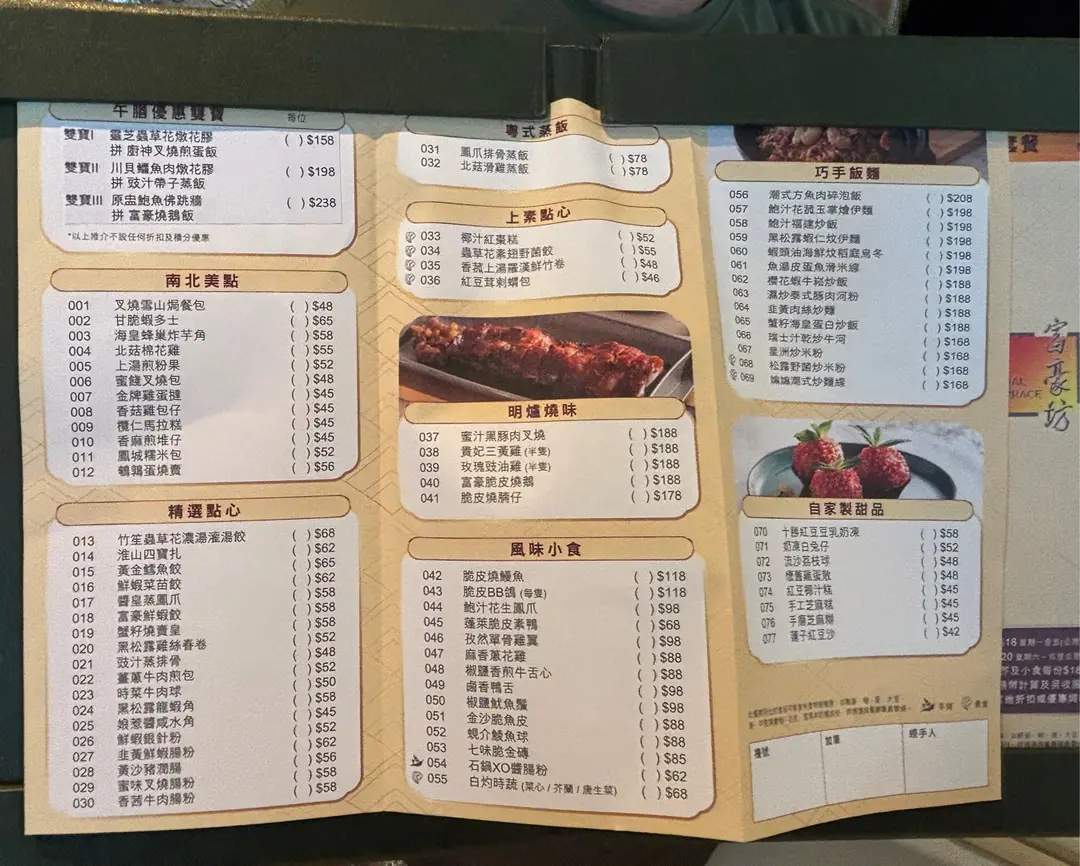 午膳優惠雙寶
每位
雙寶I 靈芝蟲草花燉花膠
拼 廚神叉燒煎蛋飯 ( ) $158
雙寶II 川貝鱷魚肉燉花膠
拼 豉汁帶子蒸飯 ( ) $198
雙寶III 原盅鮑魚佛跳牆
拼 富豪燒鵝飯 ( ) $238
*以上推介不設任何折扣及積分優惠
南北美點
001 叉燒雪山焗餐包 ( ) $48
002 甘脆蝦多士 ( ) $65
003 海皇蜂巢炸芋角 ( ) $58
004 北菇棉花雞 ( ) $55
005 上湯煎粉果 ( ) $52
006 蜜餞叉燒包 ( ) $48
007 金牌雞蛋撻 ( ) $45
008 香菇雞包仔 ( ) $45
009 欖仁馬拉糕 ( ) $45
010 香麻煎堆仔 ( ) $45
011 鳳城糯米包 ( ) $52
012 鵪鶉蛋燒賣 ( ) $56
精選點心
013 竹笙蟲草花濃湯灌湯餃 ( ) $68
014 淮山四寶扎 ( ) $62
015 黃金鱈魚餃 ( ) $65
016 鮮蝦菜苗餃 ( ) $62
017 醬皇蒸鳳爪 ( ) $58
018 富豪鮮蝦餃 ( ) $58
019 蟹籽燒賣皇 ( ) $58
020 黑松露雞絲春卷 ( ) $48
021 豉汁蒸排骨 ( ) $52
022 薑蔥牛肉煎包 ( ) $50
023 時菜牛肉球 ( ) $58
024 黑松露龍蝦角 ( ) $45
025 娘惹醬咸水角 ( ) $52
026 鮮蝦銀針粉 ( ) $62
027 韭黃鮮蝦腸粉 ( ) $56
028 黃沙豬潤腸 ( ) $58
029 蜜味叉燒腸粉 ( ) $58
030 香茜牛肉腸粉
粵式蒸飯
031 鳳爪排骨蒸飯 ( ) $78
032 北菇滑雞蒸飯 ( ) $78
上素點心
033 椰汁紅棗糕 ( ) $52
034 蟲草花素翅野菌餃 ( ) $55
035 香菇上湯羅漢鮮竹卷 ( ) $48
036 紅豆茸剌蝟包 ( ) $46
明爐燒味
037 蜜汁黑豚肉叉燒 ( ) $188
038 貴妃三黃雞 (半隻) ( ) $188
039 玫瑰豉油雞 (半隻) ( ) $188
040 富豪脆皮燒鵝 ( ) $188
041 脆皮燒腩仔 ( ) $178
風味小食
042 脆皮燒鰻魚 ( ) $118
043 脆皮BB鴿 (每隻) ( ) $118
044 鮑汁花生鳳爪 ( ) $98
045 蓬萊脆皮素鴨 ( ) $68
046 孜然單骨雞翼 ( ) $98
047 麻香蔥花雞 ( ) $88
048 椒鹽香煎牛舌心 ( ) $88
049 鹵香鴨舌 ( ) $98
050 椒鹽魷魚鬚 ( ) $98
051 金沙脆魚皮 ( ) $88
052 蜆介鯪魚球 ( ) $88
053 七味脆金磚 ( ) $85
054 石鍋XO醬腸粉 ( ) $62
055 白灼時蔬 (菜心 / 芥蘭 / 唐生菜) ( ) $68
巧手飯麵
056 潮式方魚肉碎泡飯 ( ) $208
057 鮑汁花菰玉掌燴伊麵 ( ) $198
058 鮑汁福建炒飯 ( ) $198
059 黑松露蝦仁炆伊麵 ( ) $198
060 蝦頭油海鮮炆稻庭烏冬 ( ) $198
061 魚湯皮蛋魚滑米線 ( ) $198
062 櫻花蝦牛崧炒飯 ( ) $188
063 濕炒泰式豚肉河粉 ( ) $188
064 韭黃肉絲炒麵 ( ) $188
065 蟹籽海皇蛋白炒飯 ( ) $188
066 瑞士汁乾炒牛河 ( ) $168
067 星洲炒米粉 ( ) $168
068 松露野菌炒米粉 ( ) $168
069 潮式炒麵線 ( ) $168
自家製甜品
070 十勝紅豆豆乳奶凍 ( ) $58
071 奶凍白兔仔 ( ) $52
072 流沙荔枝球 ( ) $48
073 懷舊雞蛋散 ( ) $48
074 紅豆椰汁糕 ( ) $45
075 手工芝麻糕 ( ) $45
076 手磨芝麻糊 ( ) $45
077 蓮子紅豆沙 ( ) $42
檯號
經手人
富豪坊